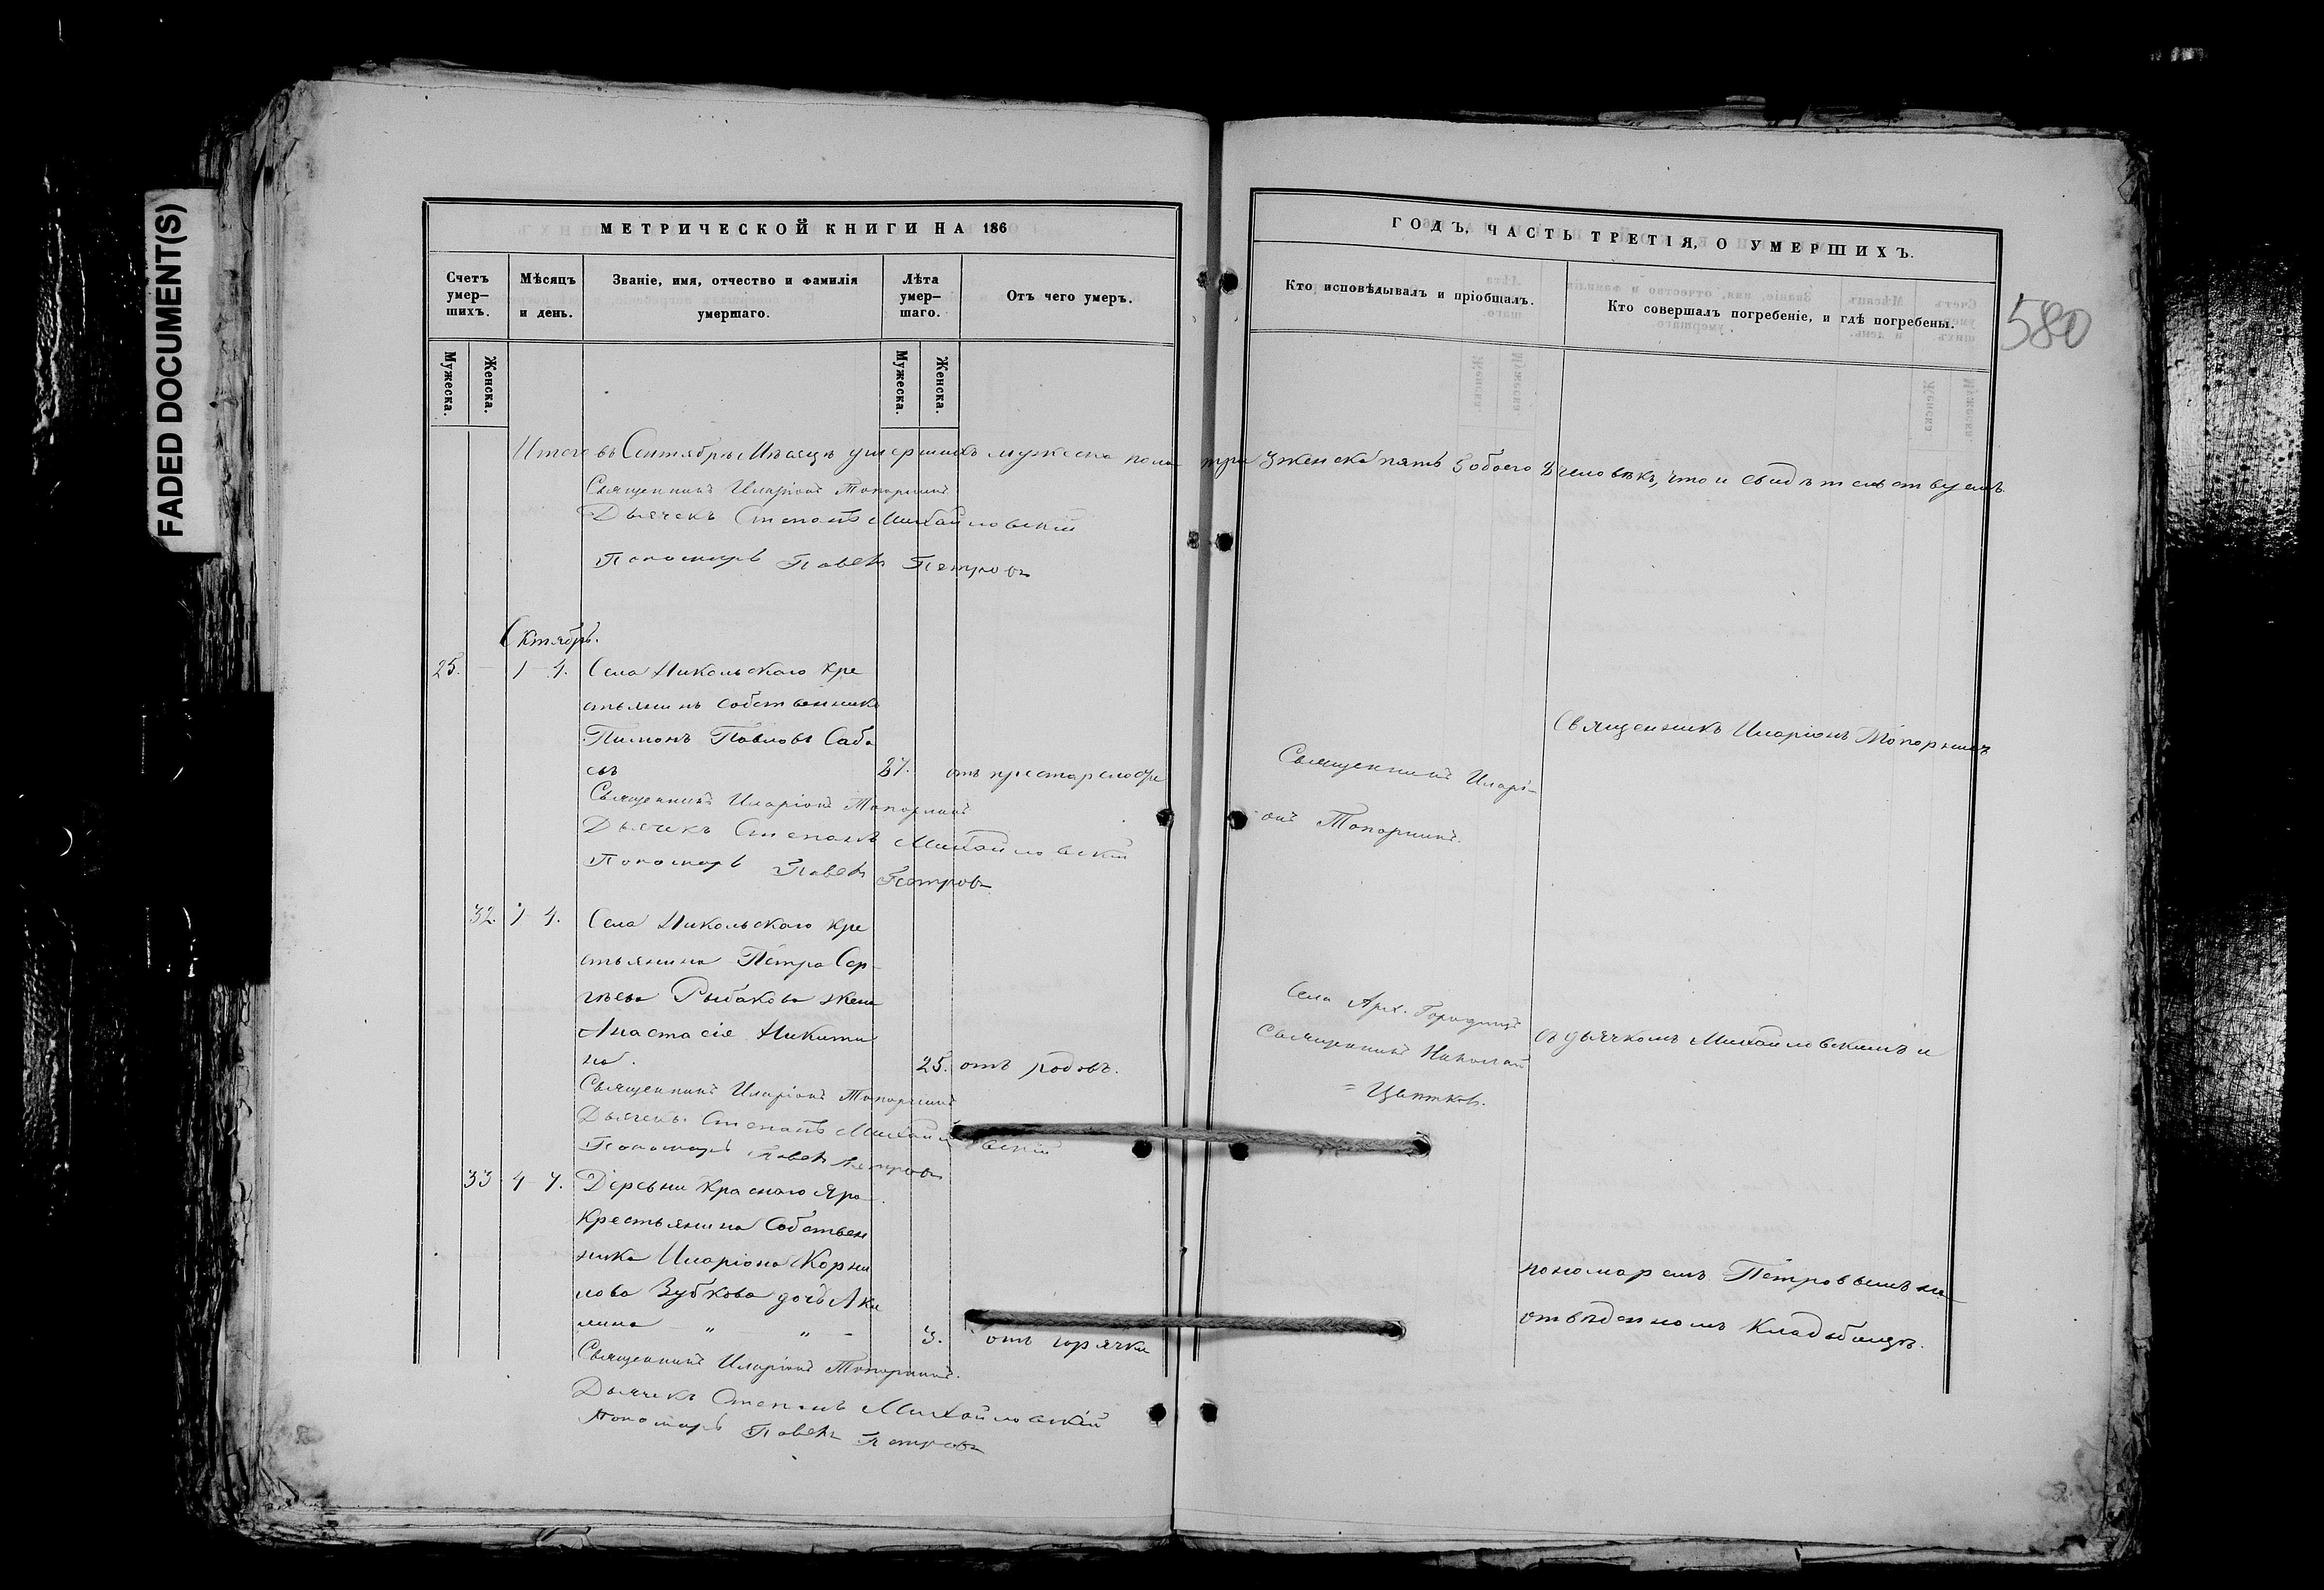 FADED DOCUMENT(S)
МЕТРИЧЕСКОЙ КНИГИ НА 186
Счетъ умер-шихъ.
Мѣсяцъ и день.
Званіе, имя, отчество и фамилія умершаго.
Лѣта умер-шаго.
Отъ чего умеръ.
Мужеска.
Женска.
Мужеска.
Женска.
Итого въ Сентябрѣ Мѣсяцѣ умершихъ мужеска пола три 3 женска пять 5 обоего 8 человѣкъ, что и свидѣтельствуемъ
Священникъ Иларіонъ Топорнинъ
Дьячекъ Степанъ Михайловскій
Пономарь Павелъ Петровъ
Октябрь.
25. — 1 4. Села Никольскаго кре
стьянинъ собственникъ
Пимонъ Павловъ Саба
евъ 87. отъ престарелости
Священникъ Иларіонъ Топорнинъ
Дьячекъ Степанъ Михайловскій
Пономарь Павелъ Петровъ
32. 1 4. Села Никольскаго кре
стьянина Петра Сер-
гѣева Рыбакова жена
Анастасія Никити
на. 25. отъ родовъ.
Священникъ Иларіонъ Топорнинъ
Дьячекъ Степанъ Михайловскій
Пономарь Павелъ Петровъ
33 4 7. Деревни Краснаго Яра
Крестьянина Собствен
ника Иларіона Корни
лова Зубкова дочь Аки
лина 3. отъ горячки
Священникъ Иларіонъ Топорнинъ.
Дьячекъ Степанъ Михайловскій
Пономарь Павелъ Петровъ
ГОДЪ, ЧАСТЬ ТРЕТІЯ, О УМЕРШИХЪ.
Кто исповѣдывалъ и пріобщалъ.
Кто совершалъ погребеніе, и гдѣ погребены.
580
Священникъ Иларі-
онъ Топорнинъ.
Села Арх. Городищъ
Священникъ Николай
= Цвѣтковъ.
Священникъ Иларіонъ Топорнинъ
съ дьячкомъ Михайловскимъ и
пономаремъ Петровымъ на
отвѣденномъ Кладбищѣ.